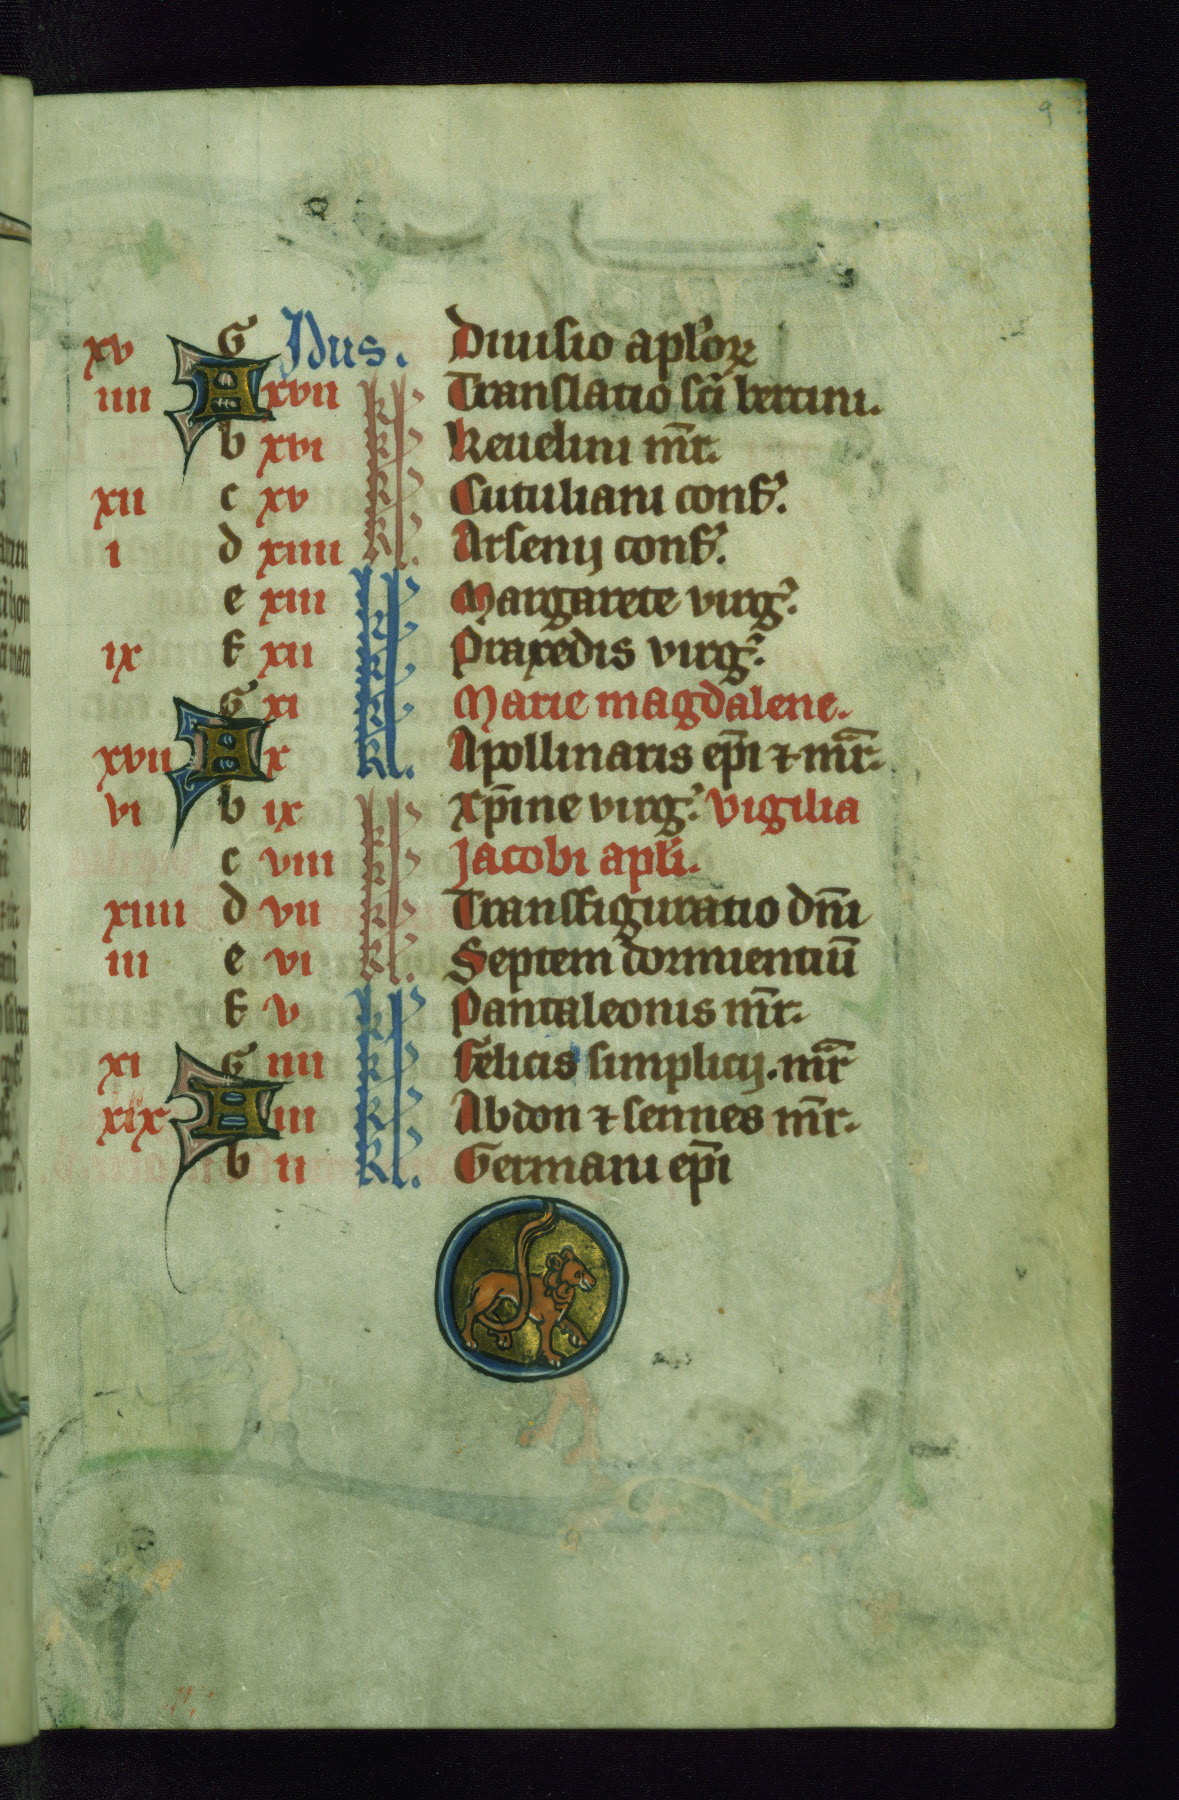 9
xv G Idus. Diuisio apl'oꝝ
iiii A xvii kl Translatio sc̄i bertini.
b xvi kl Reuelini m̄r.
xii c xv kl Cutuliani conf'.
i d xiiii kl. Arsenij conf'.
e xiii kl Margarete virg'.
ix f xii kl Praxedis virg'.
G xi kl Marie magdalene.
xvii A x kl. Apollinaris ep̄i ⁊ m̄r.
vi b ix kl xp̄ine virg'. vigilia
c viii kl Jacobi apl'i.
xiiii d vii kl Transfiguratio dn̄i
iii e vi kl. Septem dormientiū
f v kl Pantaleonis m̄r.
xi G iiii kl felicis simplicij. m̄r
xix A iii kl Abdon ⁊ sennes m̄r.
b ii kl. Germani ep̄i